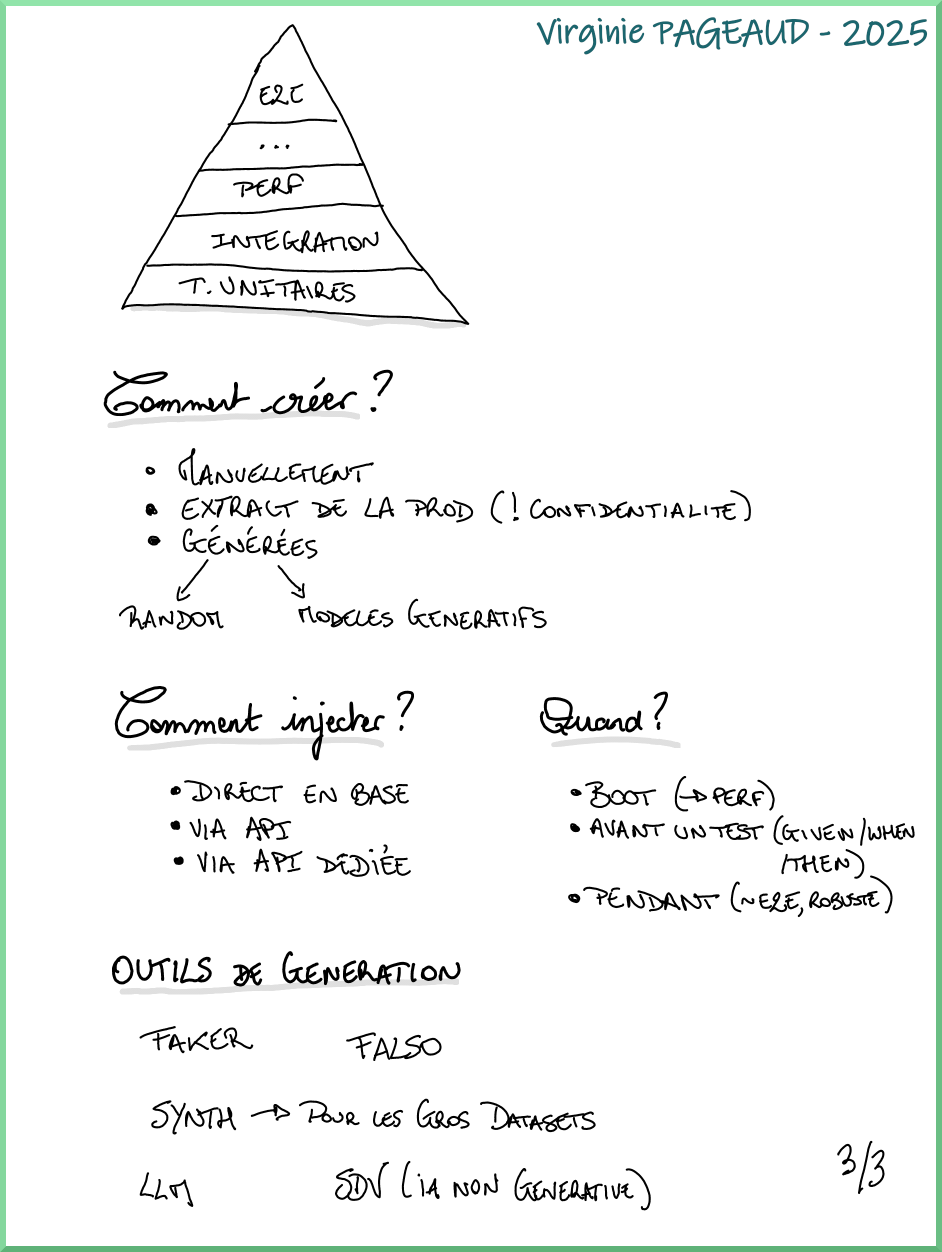 Virginie PAGEAUD - 2025
E2E
...
PERF
INTEGRATION
T. UNITAIRES
Comment créer ?
• MANUELLEMENT
• EXTRACT DE LA PROD (! CONFIDENTIALITE)
• GÉNÉRÉES
RANDOM MODELES GENERATIFS
Comment injecter ?
• DIRECT EN BASE
• VIA API
• VIA API DÉDIÉE
Quand ?
• BOOT (→ PERF)
• AVANT UN TEST (GIVEN/WHEN
/THEN)
• PENDANT (~E2E, ROBUSTE)
OUTILS DE GENERATION
FAKER FALSO
SYNTH → POUR LES GROS DATASETS
LLM SDV (IA NON GENERATIVE)
3/3